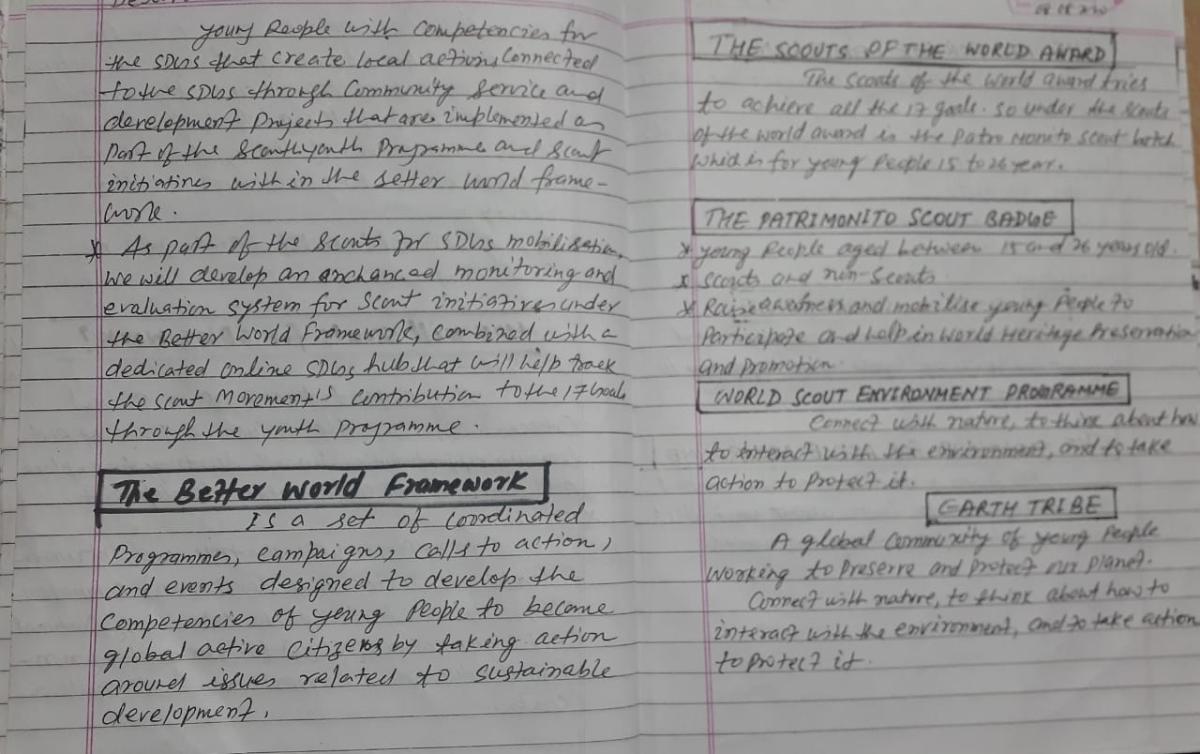 young People with competencies for
the SDGs that create local actions connected
to the SDGs through Community Service and
development projects that are implemented as
part of the Scout youth Programme and Scout
initiatives with in the better world frame-
work.
* As part of the Scouts for SDGs mobilisation,
we will develop an anchanced monitoring and
evaluation system for Scout initiatives under
the Better World Framework, combined with a
dedicated online SDGs hub that will help track
the Scout Movement's contribution to the 17 Goals
through the youth programme.
The Better World Framework
Is a set of coordinated
Programmes, campaigns, calls to action,
and events designed to develop the
competencies of young People to become
global active citizens by taking action
around issues related to sustainable
development.
THE SCOUTS OF THE WORLD AWARD
The scouts of the world award tries
to achieve all the 17 goals. so under the scouts
of the world award is the Patro Monito Scout batch
which is for young People 15 to 26 year.
THE PATRIMONITO SCOUT BADGE
* young People aged between 15 and 26 years old.
* scouts and non-Scouts
* Raise awatness and mobilise young People to
Participate and help in World Heritage Preservation
and Promotion.
WORLD SCOUT ENVIRONMENT PROGRAMME
Connect with nature, to think about how
to interact with the environment, and to take
action to Protect it.
EARTH TRIBE
A global community of young People
working to Preserve and Protect our planet.
Connect with nature, to think about how to
interact with the environment, and to take action
to protect it.